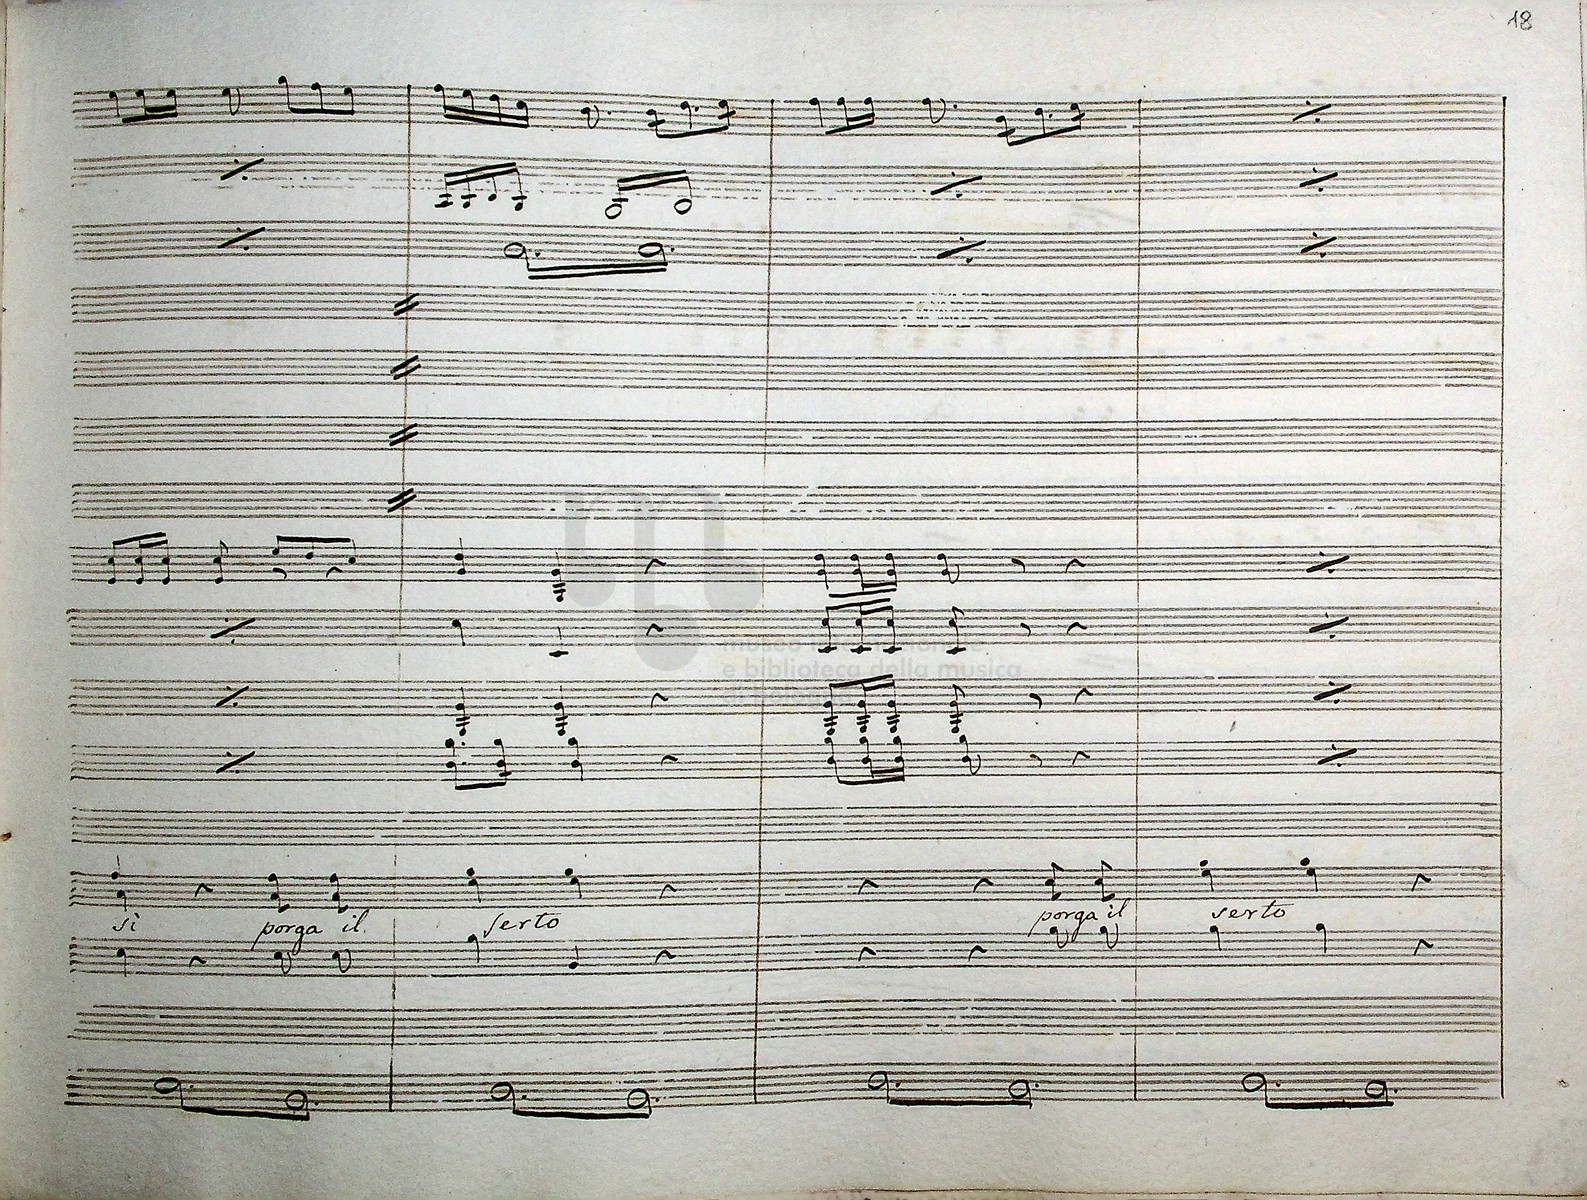 18
museo internazionale
e biblioteca della musica
di bologna
si porga il serto porga il serto